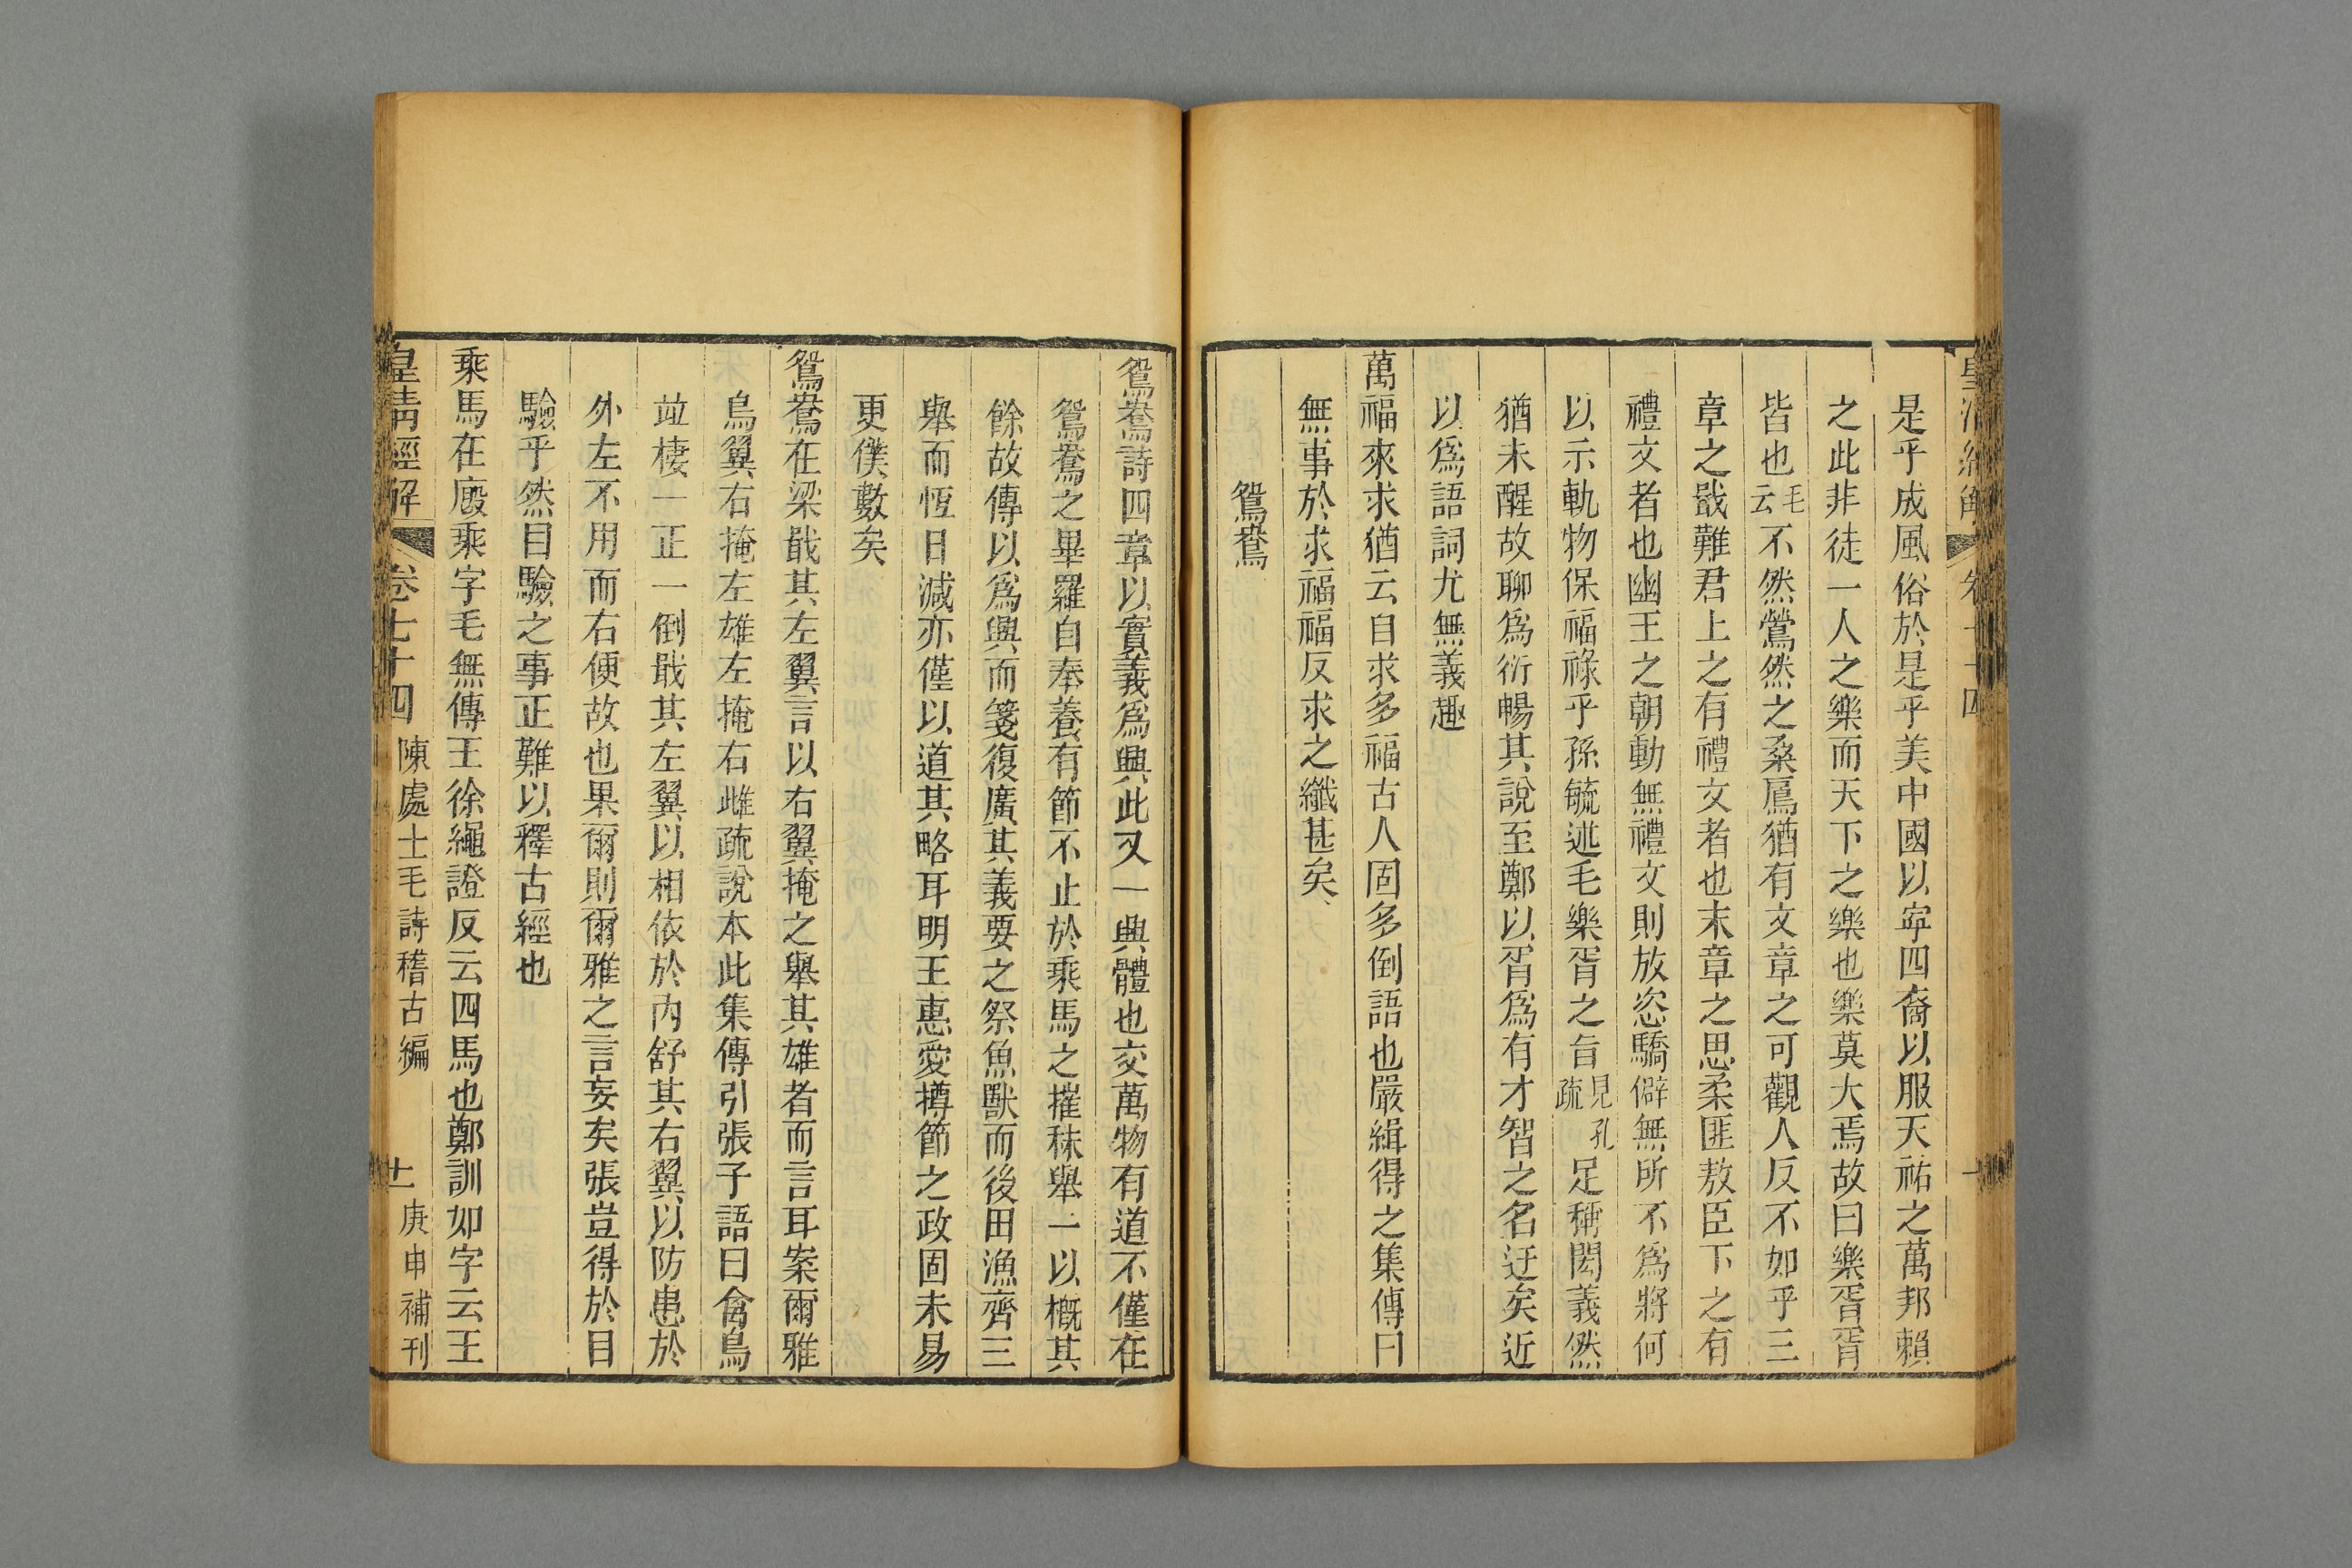 是乎成風俗於是乎美中國以寜四裔以服天祐之萬邦賴
之此非徒一人之樂而天下之樂也樂莫大焉故曰樂胥胥
皆也毛云不然鶯然之桑扈猶有文章之可觀人反不如乎三
章之戢難君上之有禮文者也末章之思柔匪敖臣下之有
禮文者也幽王之朝動無禮文則放恣驕僻無所不爲將何
以示軌物保福祿乎孫毓述毛樂胥之旨見孔疏足稱閎義然
猶未醒故聊爲衍暢其說至鄭以胥爲有才智之名迂矣近
以爲語詞尤無義趣
萬福來求猶云自求多福古人固多倒語也嚴緝得之集傳曰
無事於求福福反求之纖甚矣
鴛鴦
鴛鴦詩四章以實義爲興此又一興體也交萬物有道不僅在
鴛鴦之畢羅自奉養有節不止於乘馬之摧秣舉一以槪其
餘故傳以爲興而箋復廣其義要之祭魚獸而後田漁齊三
舉而恆日減亦僅以道其略耳明王惠愛撙節之政固未易
更僕數矣
鴛鴦在梁戢其左翼言以右翼掩之舉其雄者而言耳案爾雅
鳥翼右掩左雄左掩右雌疏說本此集傳引張子語曰禽鳥
竝棲一正一倒戢其左翼以相依於內舒其右翼以防患於
外左不用而右便故也果爾則爾雅之言妄矣張豈得於目
驗乎然目驗之事正難以釋古經也
乘馬在廄乘字毛無傳王徐繩證反云四馬也鄭訓如字云王
皇淸經解 卷七十四 陳處士毛詩稽古編 十一 庚申補刊